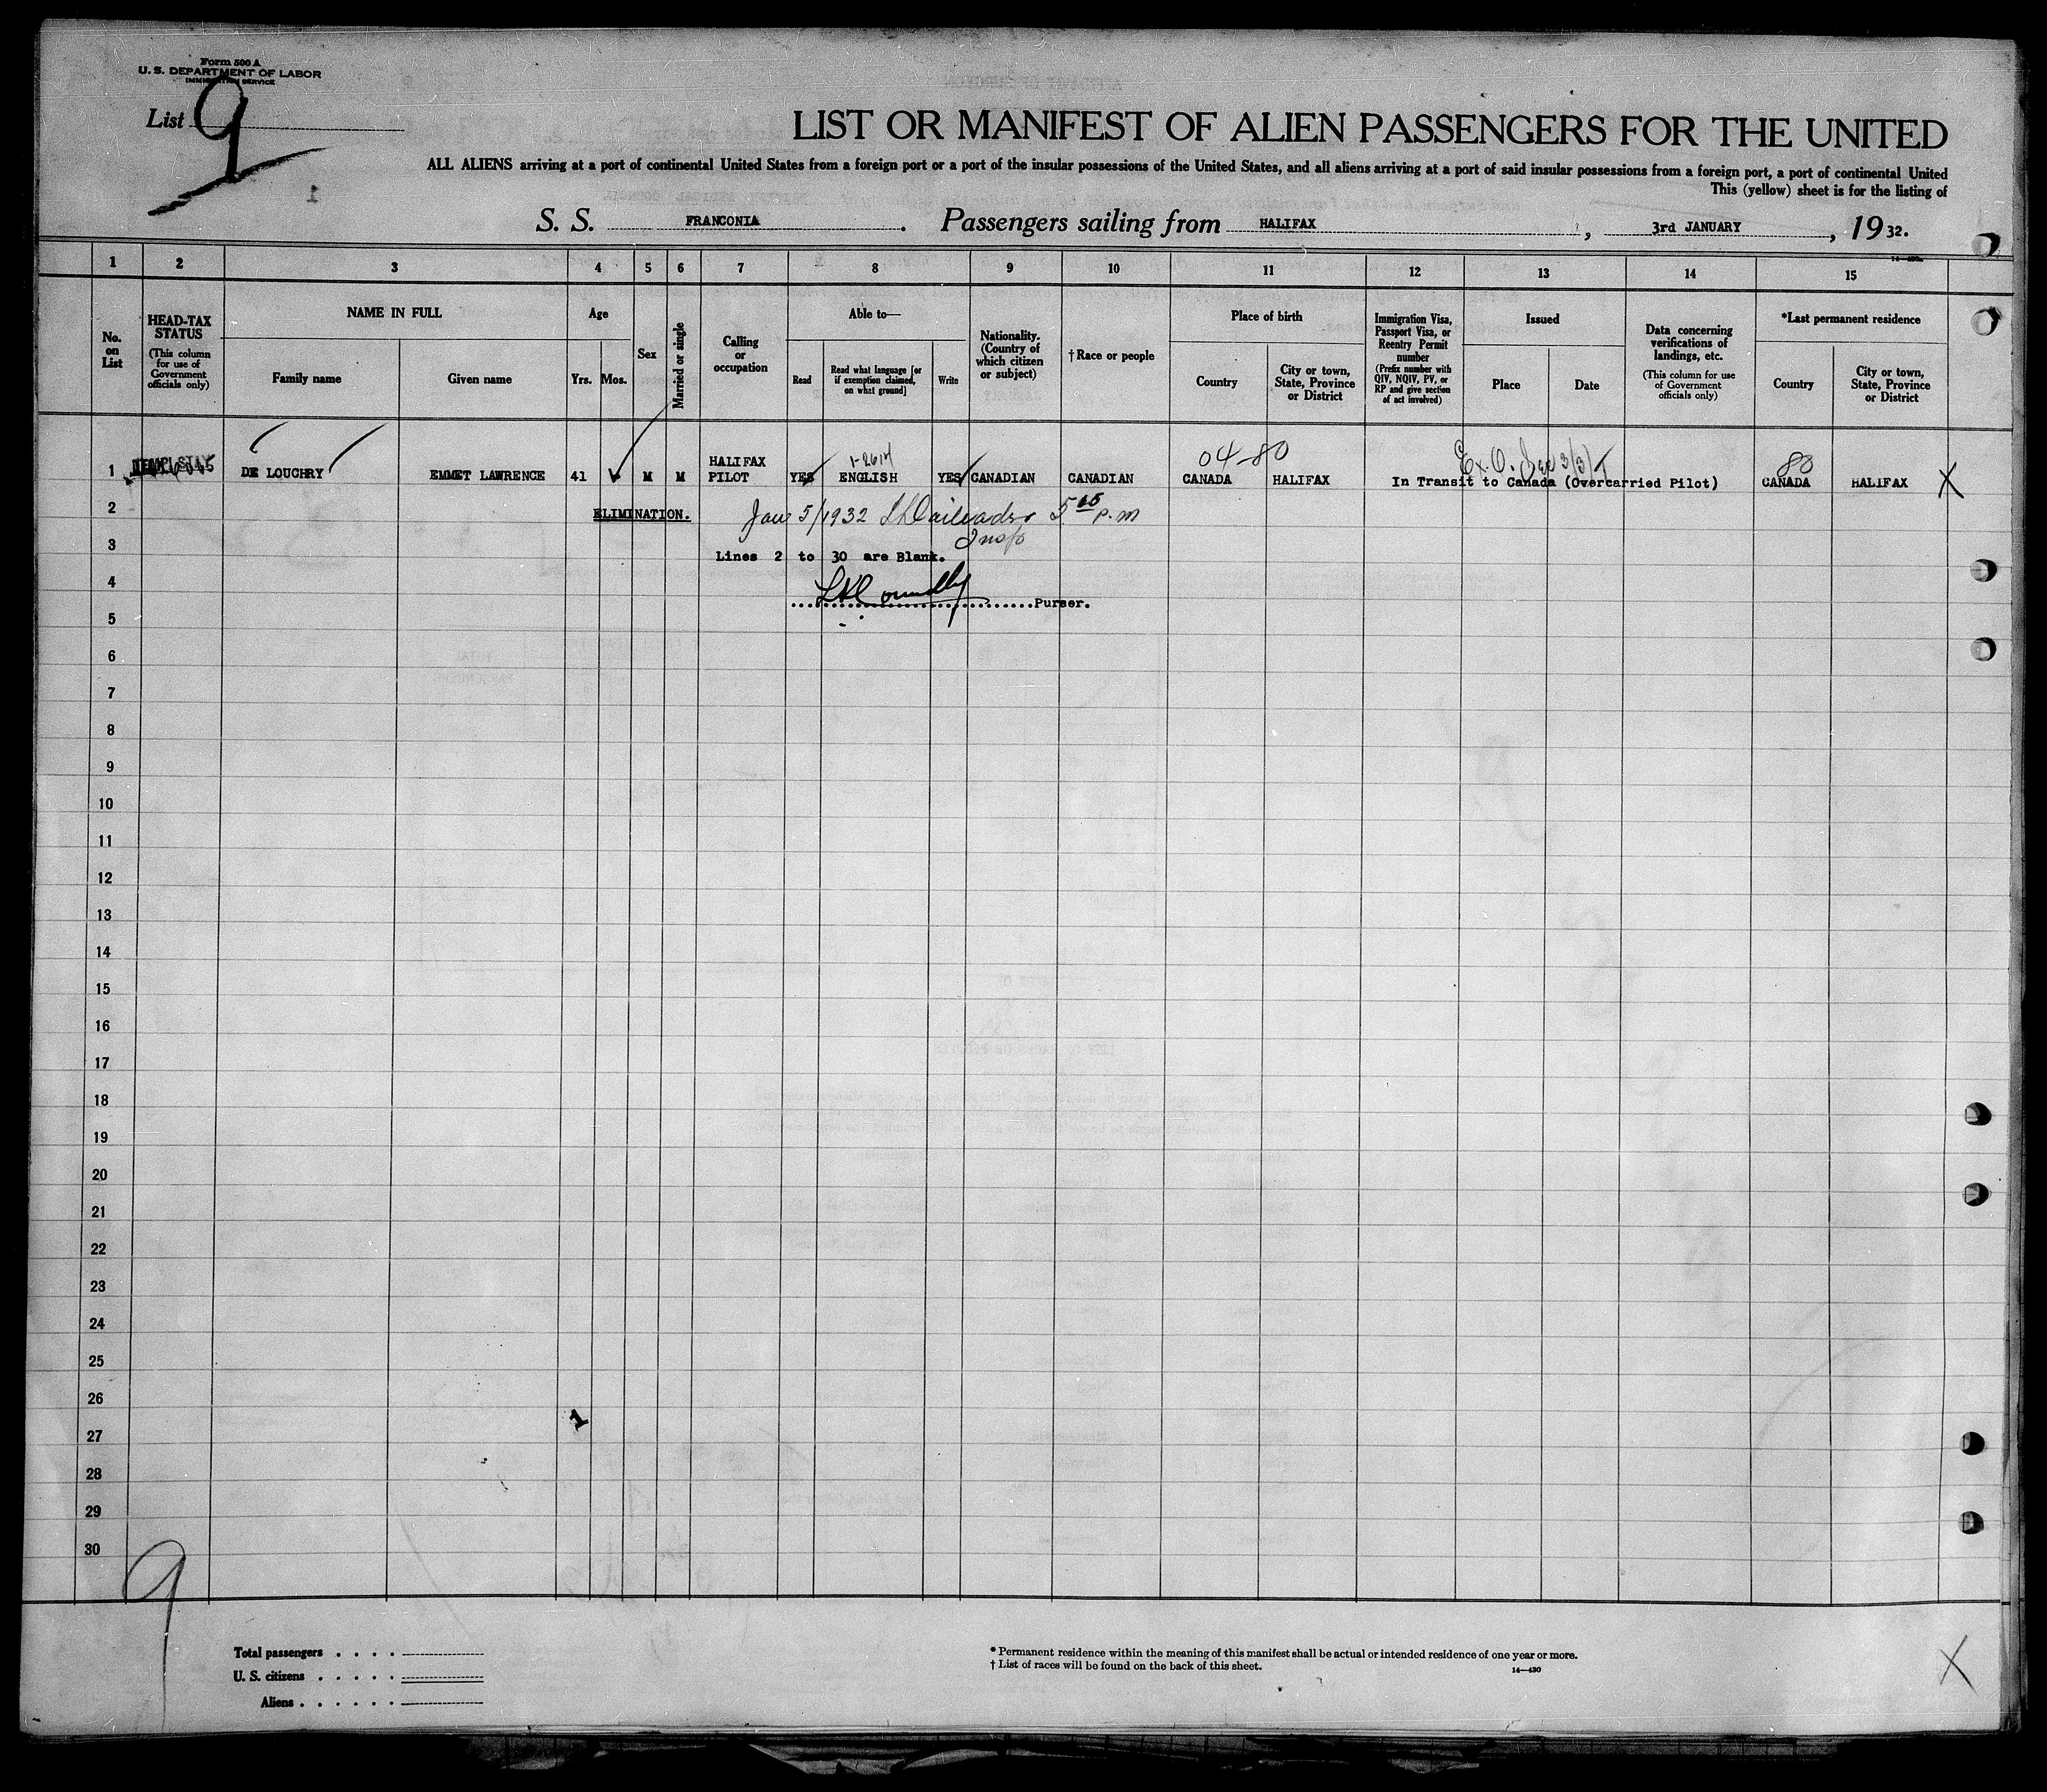 Form 500 A
U. S. DEPARTMENT OF LABOR
IMMIGRATION SERVICE
List 9
LIST OR MANIFEST OF ALIEN PASSENGERS FOR THE UNITED
ALL ALIENS arriving at a port of continental United States from a foreign port or a port of the insular possessions of the United States, and all aliens arriving at a port of said insular possessions from a foreign port, a port of continental United
This (yellow) sheet is for the listing of
S. S. FRANCONIA. Passengers sailing from HALIFAX, 3rd JANUARY, 1932.
1 2 3 4 5 6 7 8 9 10 11 12 13 14 15
No. on List
HEAD-TAX STATUS
(This column for use of Government officials only)
NAME IN FULL
Family name
Given name
Age
Yrs. Mos.
Sex
Married or single
Calling or occupation
Able to—
Read
Read what language [or if exemption claimed, on what ground]
Write
Nationality. (Country of which citizen or subject)
†Race or people
Place of birth
Country
City or town, State, Province or District
Immigration Visa, Passport Visa, or Reentry Permit number
(Prefix number with QIV, NQIV, PV, or RP and give section of act involved)
Issued
Place
Date
Data concerning verifications of landings, etc.
(This column for use of Government officials only)
*Last permanent residence
Country
City or town, State, Province or District
04-80 80
1 DE LOUCHRY EMMET LAWRENCE 41 M M HALIFAX PILOT YES ENGLISH YES CANADIAN CANADIAN CANADA HALIFAX In Transit to Canada (Overcarried Pilot) CANADA HALIFAX X
2 ELIMINATION. Jan 5/1932 p.m
3 Lines 2 to 30 are Blank.
Insp
4
....................Purser.
5
6
7
8
9
10
11
12
13
14
15
16
17
18
19
20
21
22
23
24
25
26
1
27
28
29
30
9
Total passengers . . . .
U. S. citizens . . . . .
Aliens . . . . . .
* Permanent residence within the meaning of this manifest shall be actual or intended residence of one year or more.
† List of races will be found on the back of this sheet.
14—430
X